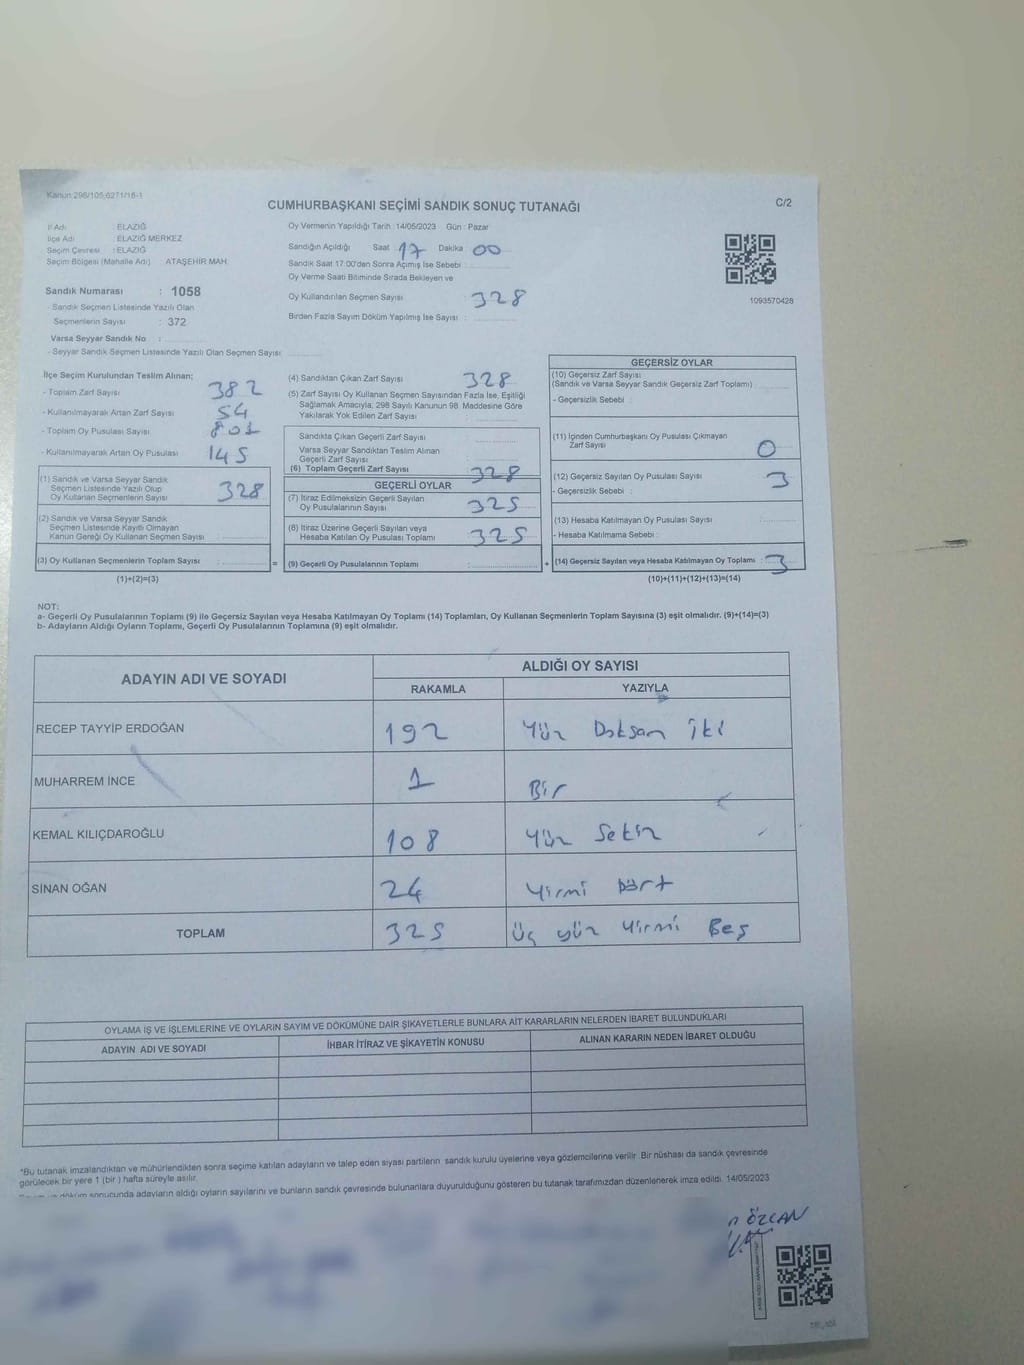 Kanun 298/105-6271/16-1
CUMHURBAŞKANI SEÇİMİ SANDIK SONUÇ TUTANAĞI
C/2
İl Adı : ELAZIĞ
İlçe Adı : ELAZIĞ MERKEZ
Seçim Çevresi : ELAZIĞ
Seçim Bölgesi (Mahalle Adı) ATAŞEHİR MAH.
Sandık Numarası : 1058
- Sandık Seçmen Listesinde Yazılı Olan
Seçmenlerin Sayısı : 372
Varsa Seyyar Sandık No :
- Seyyar Sandık Seçmen Listesinde Yazılı Olan Seçmen Sayısı:
Oy Vermenin Yapıldığı Tarih :14/05/2023 Gün : Pazar
Sandığın Açıldığı Saat 17 Dakika 00
Sandık Saat 17:00'den Sonra Açımış İse Sebebi :
Oy Verme Saati Bitiminde Sırada Bekleyen ve
Oy Kullandırılan Seçmen Sayısı : 328
Birden Fazla Sayım Döküm Yapılmış İse Sayısı :
1093570428
İlçe Seçim Kurulundan Teslim Alınan;
- Toplam Zarf Sayısı : 382
- Kullanılmayarak Artan Zarf Sayısı : 54
- Toplam Oy Pusulası Sayısı : 801
- Kullanılmayarak Artan Oy Pusulası : 145
(1) Sandık ve Varsa Seyyar Sandık
Seçmen Listesinde Yazılı Olup
Oy Kullanan Seçmenlerin Sayısı 328
(2) Sandık ve Varsa Seyyar Sandık
Seçmen Listesinde Kayıtlı Olmayan
Kanun Gereği Oy Kullanan Seçmen Sayısı :
(3) Oy Kullanan Seçmenlerin Toplam Sayısı :
(1)+(2)=(3)
(4) Sandıktan Çıkan Zarf Sayısı : 328
(5) Zarf Sayısı Oy Kullanan Seçmen Sayısından Fazla İse, Eşitliği
Sağlamak Amacıyla, 298 Sayılı Kanunun 98. Maddesine Göre
Yakılarak Yok Edilen Zarf Sayısı :
Sandıkta Çıkan Geçerli Zarf Sayısı :
Varsa Seyyar Sandıktan Teslim Alınan
Geçerli Zarf Sayısı
(6) Toplam Geçerli Zarf Sayısı : 328
GEÇERLİ OYLAR
(7) İtiraz Edilmeksizin Geçerli Sayılan
Oy Pusulalarının Sayısı : 325
(8) İtiraz Üzerine Geçerli Sayılan veya
Hesaba Katılan Oy Pusulası Toplamı : 325
= (9) Geçerli Oy Pusulalarının Toplamı : +
GEÇERSİZ OYLAR
(10) Geçersiz Zarf Sayısı
(Sandık ve Varsa Seyyar Sandık Geçersiz Zarf Toplamı)
- Geçersizlik Sebebi :
(11) İçinden Cumhurbaşkanı Oy Pusulası Çıkmayan
Zarf Sayısı : 0
(12) Geçersiz Sayılan Oy Pusulası Sayısı : 3
- Geçersizlik Sebebi :
(13) Hesaba Katılmayan Oy Pusulası Sayısı :
- Hesaba Katılmama Sebebi :
(14) Geçersiz Sayılan veya Hesaba Katılmayan Oy Toplamı : 3
(10)+(11)+(12)+(13)=(14)
NOT:
a- Geçerli Oy Pusulalarının Toplamı (9) ile Geçersiz Sayılan veya Hesaba Katılmayan Oy Toplamı (14) Toplamları, Oy Kullanan Seçmenlerin Toplam Sayısına (3) eşit olmalıdır. (9)+(14)=(3)
b- Adayların Aldığı Oyların Toplamı, Geçerli Oy Pusulalarının Toplamına (9) eşit olmalıdır.
ADAYIN ADI VE SOYADI ALDIĞI OY SAYISI
RAKAMLA YAZIYLA
RECEP TAYYİP ERDOĞAN 192 Yüz Doksan iki
MUHARREM İNCE 1 Bir
KEMAL KILIÇDAROĞLU 108 Yüz Sekiz
SİNAN OĞAN 24 Yirmi Dört
TOPLAM 325 Üç yüz Yirmi Beş
OYLAMA İŞ VE İŞLEMLERİNE VE OYLARIN SAYIM VE DÖKÜMÜNE DAİR ŞİKAYETLERLE BUNLARA AİT KARARLARIN NELERDEN İBARET BULUNDUKLARI
ADAYIN ADI VE SOYADI İHBAR İTİRAZ VE ŞİKAYETİN KONUSU ALINAN KARARIN NEDEN İBARET OLDUĞU
*Bu tutanak imzalandıktan ve mühürlendikten sonra seçime katılan adayların ve talep eden siyasi partilerin sandık kurulu üyelerine veya gözlemcilerine verilir. Bir nüshası da sandık çevresinde
görülecek bir yere 1 (bir ) hafta süreyle asılır.
döküm sonucunda adayların aldığı oyların sayılarını ve bunların sandık çevresinde bulunanlara duyurulduğunu gösteren bu tutanak tarafımızdan düzenlenerek imza edildi. 14/05/2023
ÖZCAN